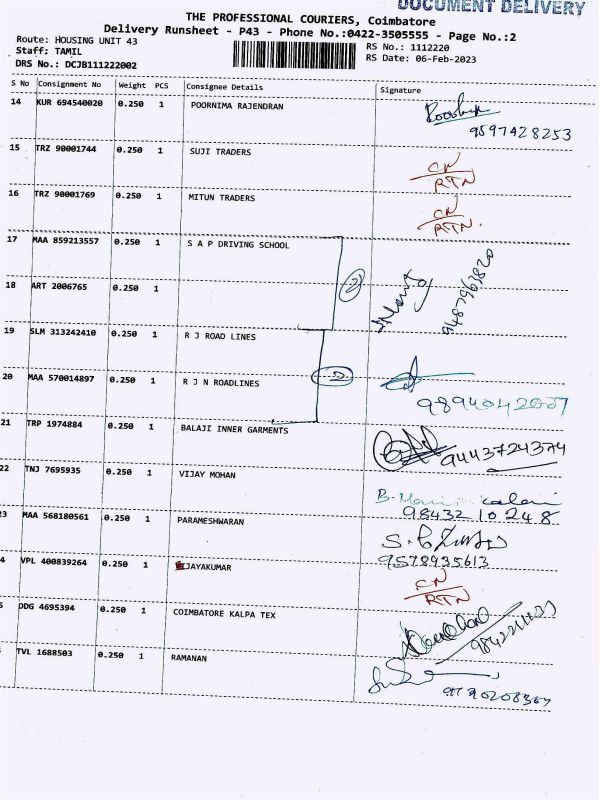 DOCUMENT DELIVERY
THE PROFESSIONAL COURIERS, Coimbatore
Delivery Runsheet - P43 - Phone No.:0422-3505555 - Page No.:2
Route: HOUSING UNIT 43
RS No.: 1112220
Staff; TAMIL
RS Date: 06-Feb-2023
DRS No.: DCJB111222002
S No Consignment No Weight PCS Consignee Details Signature
14 KUR 694540020 0.250 1 POORNIMA RAJENDRAN
9597428253
15 TRZ 90001744 0.250 1 SUJI TRADERS
CN
RTN
16 TRZ 90001769 0.250 1 MITUN TRADERS
CN
RTN.
17 MAA 859213557 0.250 1 S A P DRIVING SCHOOL
2
18 ART 2006765 0.250 1
9487963820
19 SLM 313242410 0.250 1 R J ROAD LINES
2
20 MAA 570014897 0.250 1 R J N ROADLINES
9894042007
21 TRP 1974884 0.250 1 BALAJI INNER GARMENTS
9443724374
22 TNJ 7695935 0.250 1 VIJAY MOHAN
98432 10248
3 MAA 568180561 0.250 1 PARAMESHWARAN
9578935613
4 VPL 400839264 0.250 1 JAYAKUMAR
CN
RTN
5 DDG 4695394 0.250 1 COIMBATORE KALPA TEX
TVL 1688503 0.250 1 RAMANAN